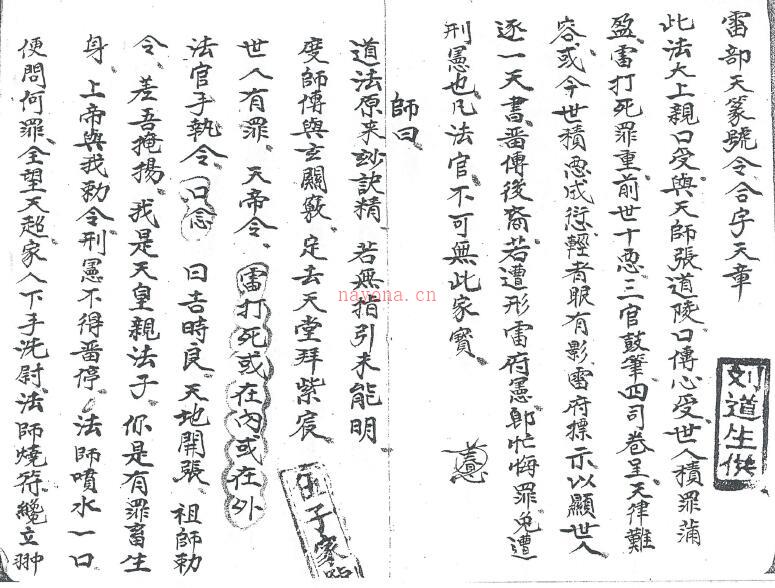 雷部天篆號令合字天章
刘道生供
此法太上親口受與天師張道陵口傳心受世人積罪蒲
盈雷打死罪重前世十惡三官鼓筆四司卷呈天律難
容或今世積惡成愆輕者眼有影雷府標示以顯世人
逐一天書畱傳後裔若遭形雷府憲郎忙悔罪免遭
刑憲也凡法官不可無此家寶
師曰
道法原来玅訣精 若無指引未能明
度師傳與玄關竅 定去天堂拜紫宸
世人有罪 天帝令 雷打死或在內或在外
法官手執令 口念 曰吉時良 天地開張 祖師勅
令 差吾掩揚 我是天皇親法子 你是有罪畜生
身 上帝與我勅令刑憲不得畱停 法師噴水一口
便問何罪 全望天超 家人下手洗 法師燒符纔立
子家
nayona.cn